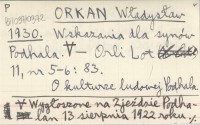 P
ORKAN Władysław
1930. Wskazania dla synów
Podhala ∀ — Orli Lot
11, nr 5-6: 83.
O kulturze ludowej Podhala
∀ Wygłoszone na Zjeździe Podha-
lan 13 sierpnia 1922 roku